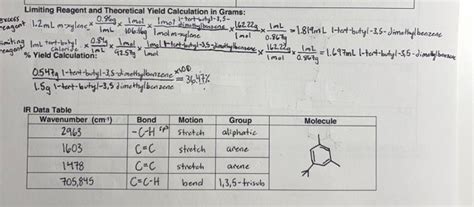 Limiting Reagent and Theoretical Yield Calculation in Grams:
excess reagent 1.2mL m-xylene × 0.86g/1mL × 1mol/106.16g × 1mol 1-tert-butyl-3,5-dimethylbenzene/1mol m-xylene × 162.27g/1mol × 1mL/0.867g = 1.819mL 1-tert-butyl-3,5-dimethylbenzene
limiting reagent 1mL tert-butyl chloride × 0.84g/1mL × 1mol/92.57g × 1mol 1-tert-butyl-3,5-dimethylbenzene/1mol × 162.27g/1mol × 1mL/0.867g = 1.697mL 1-tert-butyl-3,5-dimethylbenzene
% Yield Calculation:
0.547g 1-tert-butyl-3,5-dimethylbenzene ×100 = 36.47%
1.5g 1-tert-butyl-3,5 dimethylbenzene
IR Data Table
Wavenumber (cm⁻¹) Bond Motion Group Molecule
2963 -C-H sp³ stretch aliphatic
1603 C=C stretch arene
1478 C=C stretch arene
705,845 C=C-H bend 1,3,5-trisub